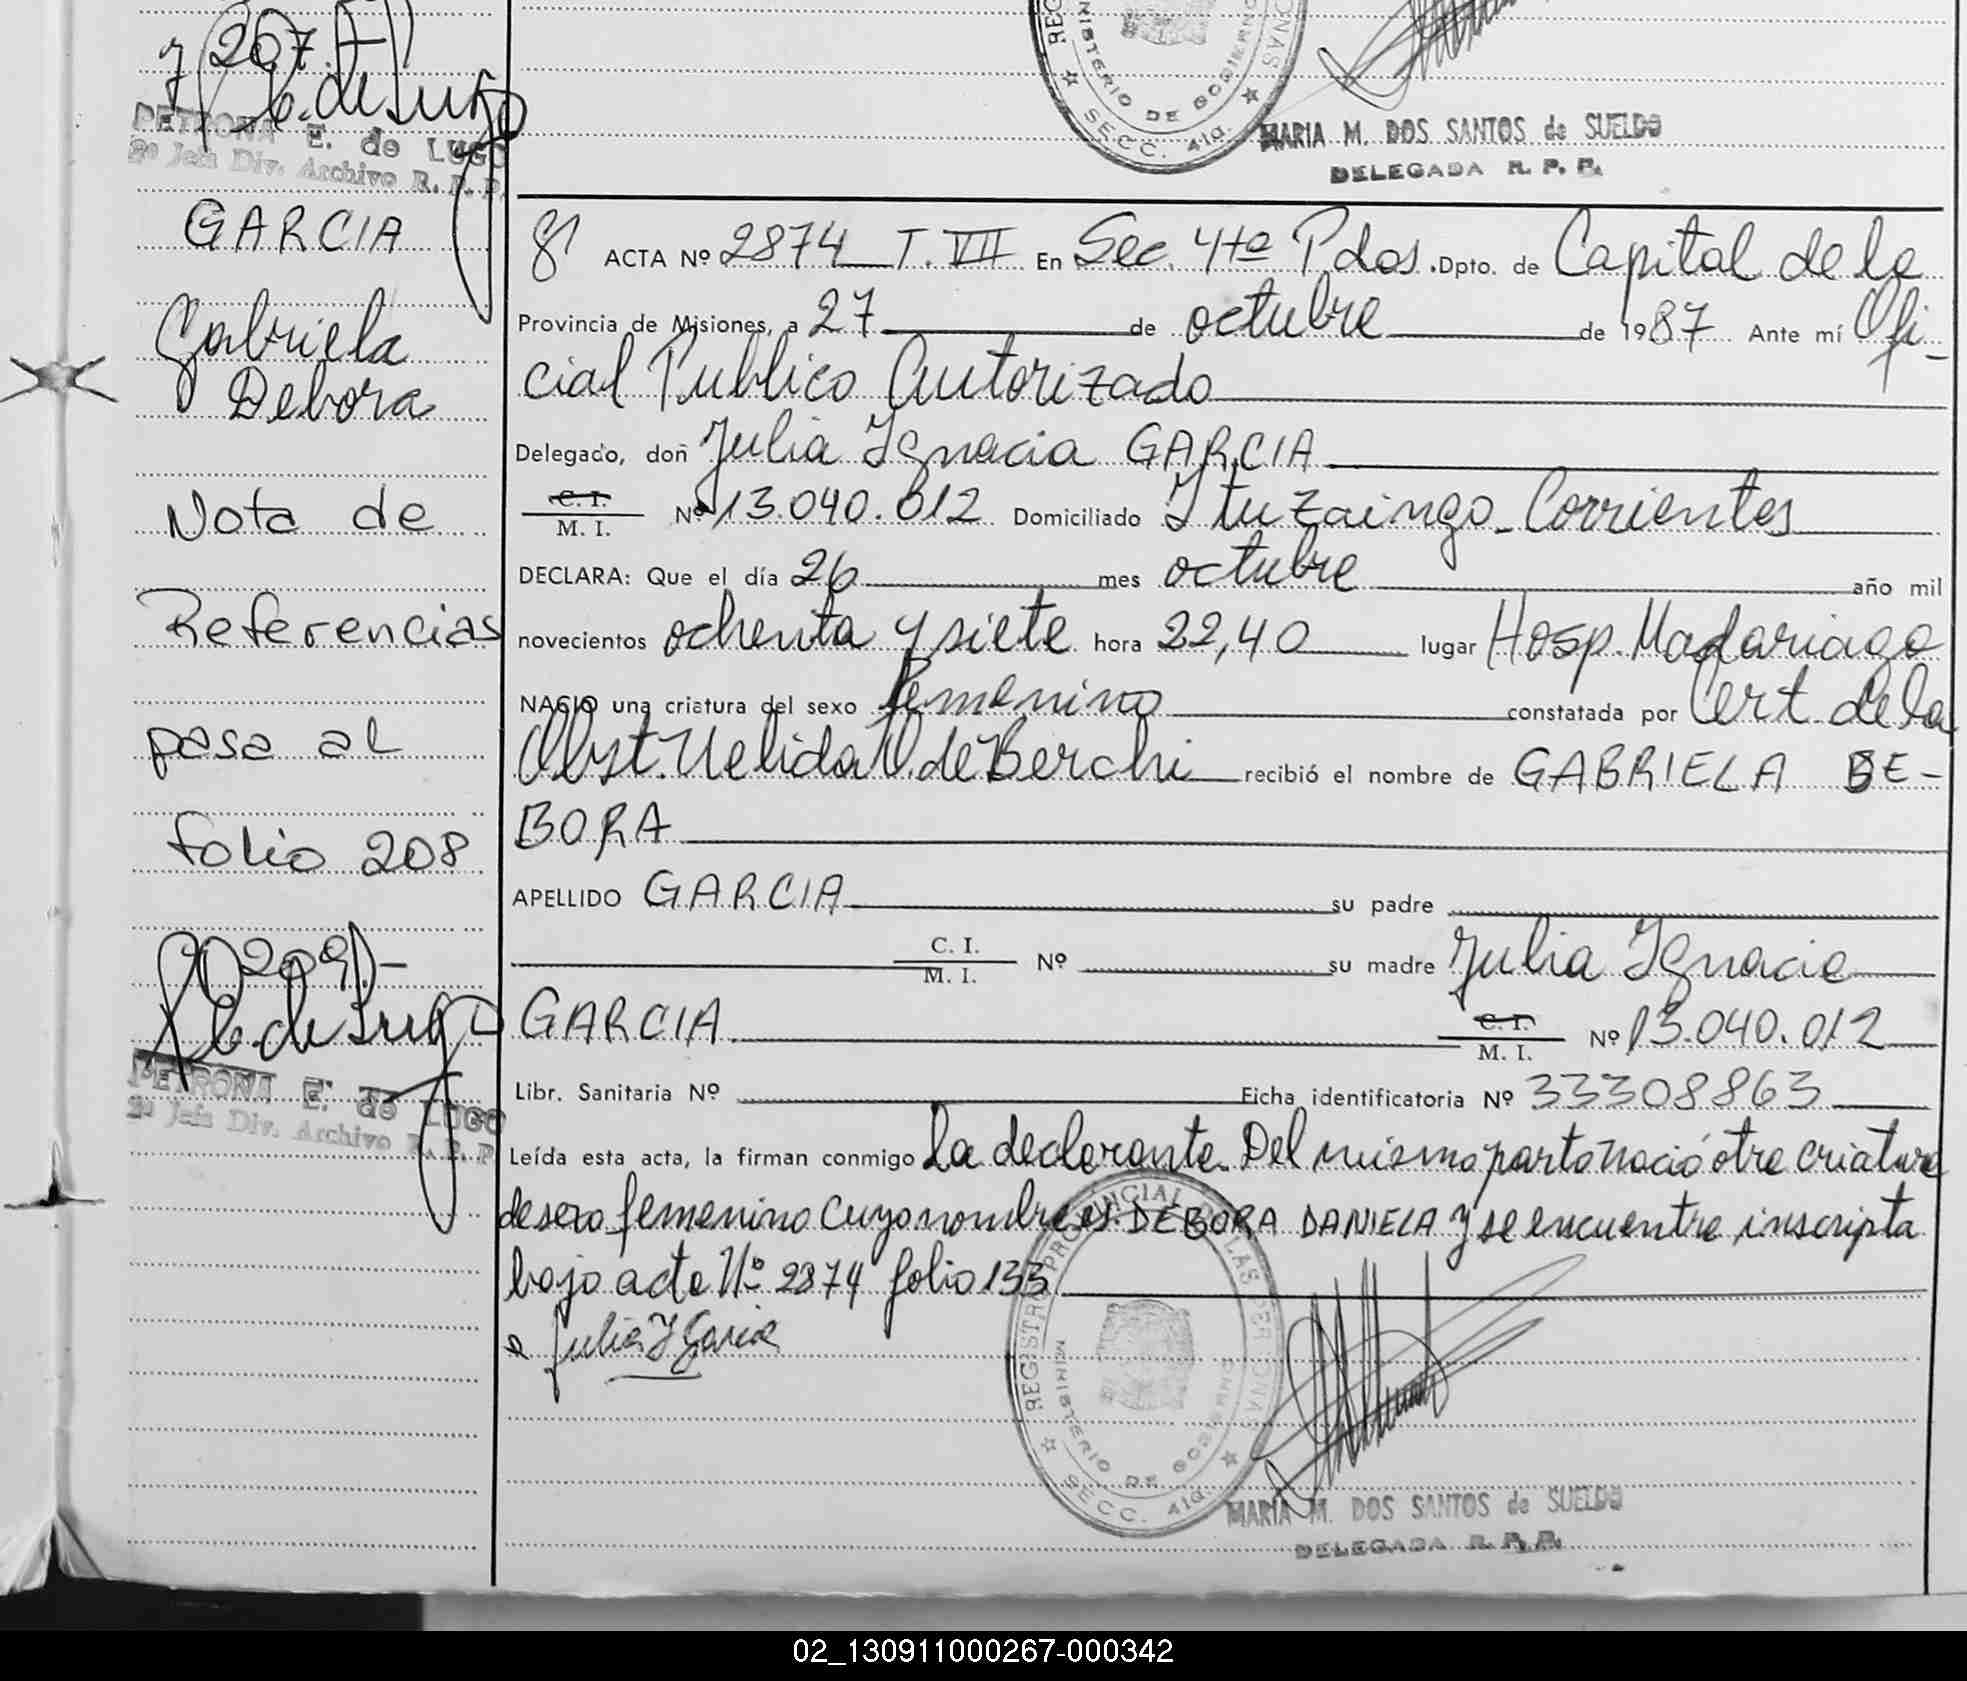 y 207.
PETRONA E. de LUGO
2º Jefa Div. Archivo R. P. P.
REG
ONAS
MINISTERIO DE GOBIERNO
SECC. 4ta.
MARIA M. DOS SANTOS de SUELDO
DELEGADA R. P. P.
GARCIA
Gabriela
Debora
Nota de
Referencias
pasa al
folio 208
y 209
E. de Lugo
PETRONA E. de LUGO
2º Jefa Div. Archivo R. P. P.
ACTA Nº 2874 T. VII En Sec. 4ta Pdas. Dpto. de Capital de la
Provincia de Misiones, a 27 de octubre de 1987 Ante mí Ofi-
cial Publico Autorizado
Delegado, doñ Julia Ignacia GARCIA
C. I.
M. I. Nº 13.040.012 Domiciliado Ituzaingo-Corrientes
DECLARA: Que el día 26 mes octubre año mil
novecientos ochenta y siete hora 22,40 lugar Hosp. Madariaga
NACIO una criatura del sexo femenino constatada por Cert. de la
Obst. Nelida V. de Berchi recibió el nombre de GABRIELA DE-
BORA
APELLIDO GARCIA su padre
C. I.
M. I. Nº su madre Julia Ignacia
GARCIA C. I.
M. I. Nº 13.040.012
Libr. Sanitaria Nº Ficha identificatoria Nº 33308863
Leída esta acta, la firman conmigo la declarante. Del mismo parto nació otra criatura
de sexo femenino cuyo nombre es: DEBORA DANIELA y se encuentra inscripta
bajo acta Nº 2874 folio 133
Julia I Garcia
REGISTRO PROVINCIAL DE LAS PERSONAS
MINISTERIO DE GOBIERNO
SECC. 4ta.
MARIA M. DOS SANTOS de SUELDO
DELEGADA R. P. P.
02_130911000267-000342